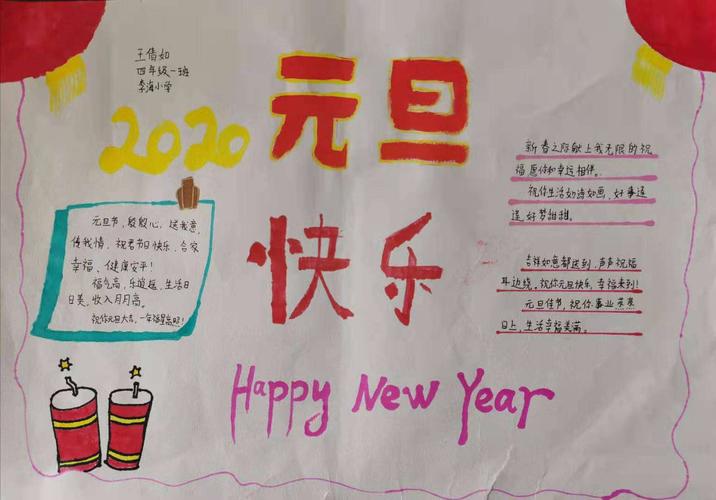 王倩如
四年级一班
李海小学
2020
元旦
快乐
元旦节，殷殷心，送我意，
传我情，祝君节日快乐，合家
幸福、健康安平！
福气高，乐逍遥，生活日
日美，收入月月高。
祝你元旦大吉，一年福星高照！
新春之际献上我无限的祝
福愿你和幸运相伴。
祝你生活如诗如画，好事连
连好梦甜甜。
吉祥如意都送到，声声祝福
耳边绕。祝你元旦快乐，幸福来到！
元旦佳节，祝你事业蒸蒸
日上，生活幸福美满。
Happy New Year